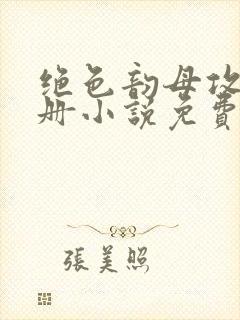 绝色韵母攻
册小説免費
張美照